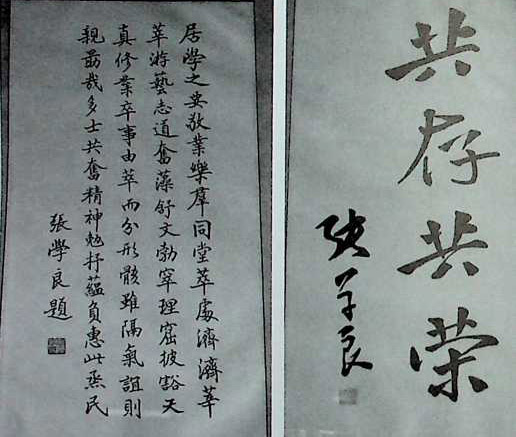 居學之要敬業樂羣同堂萃處濟濟莘
莘游藝志道奮藻舒文勃窣理窟披豁天
真修業卒事由萃而分形骸雖隔氣誼則
親勗哉多士共奮精神勉抒蘊負惠此烝民
張學良題
共存共荣
张学良